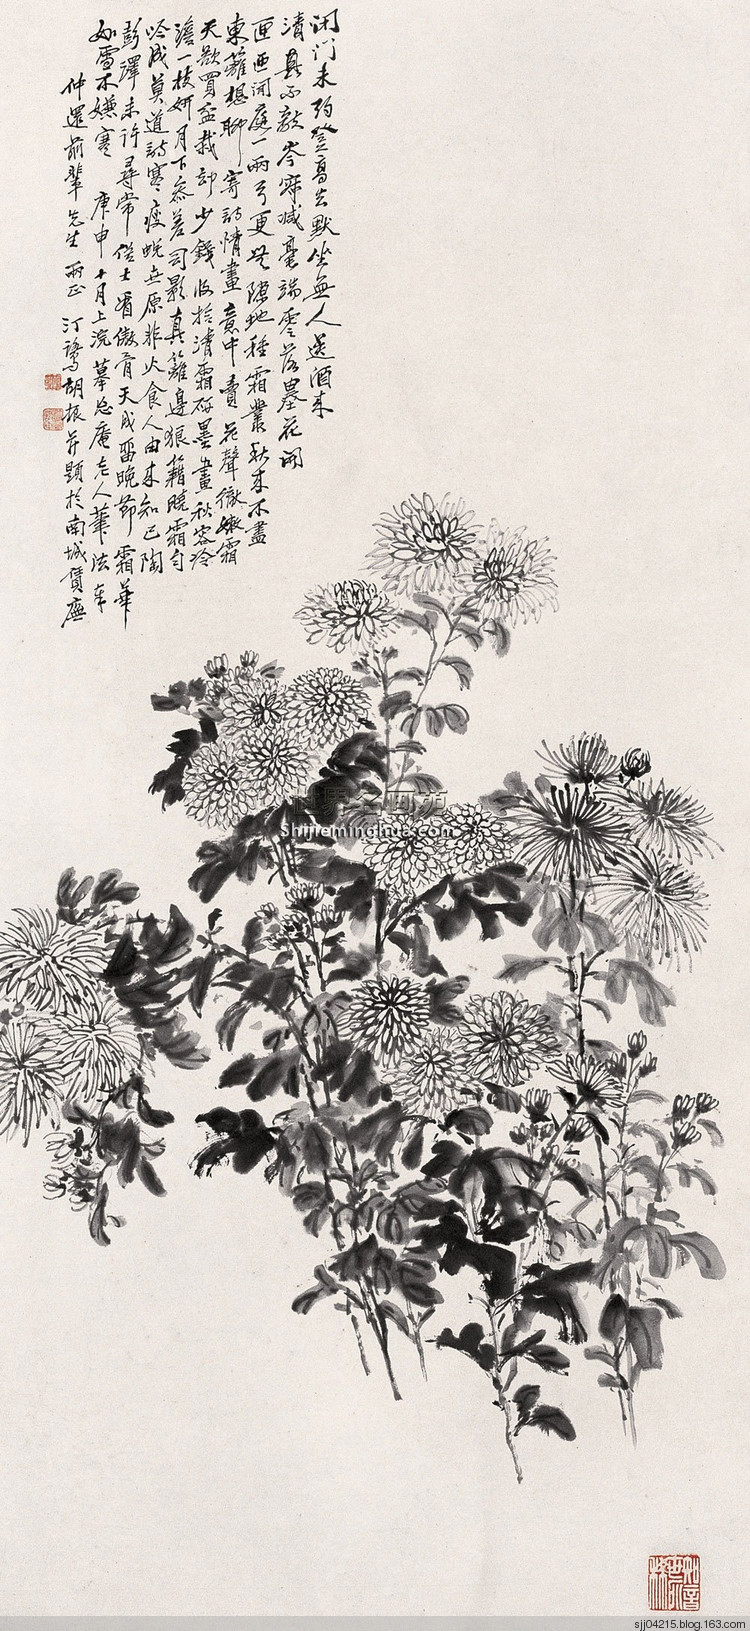 闭门未约登高去默坐无人送酒来
清真不敲岑寂减毫端零落墨花开
匝西闲庭一两弓更无隙地种霜丛秋来不尽
东篱想聊寄诗情画意中卖花声彻嫩霜
天欲买盆栽却少钱收拾清霜砚墨画秋容冷
澹一枝妍月下参差写影真篱边狼藉晓霜匀
吟成莫道诗寒瘦蜕世原非火食人由来知己陶
彭泽未许寻常俗士看傲骨天成留晚节霜华
如雪不嫌寒 庚申十月上浣摹忘庵老人笔法奉
仲还前辈先生两正 汀鹭胡振并题于南城赁庑
世界名画苑
Shijieminghua.com
sjj04215.blog.163.com